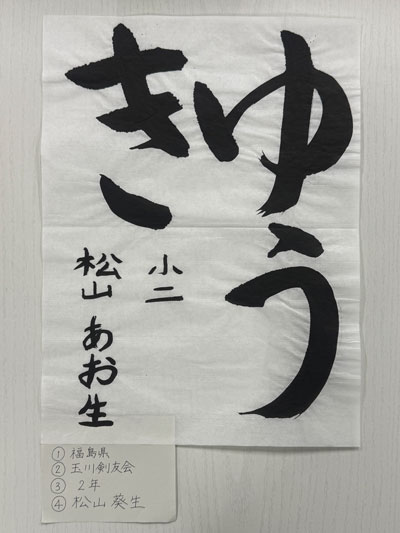 ゆう
き
小二
松山あお生
① 福島県
② 玉川剣友会
③ 2年
④ 松山 葵生